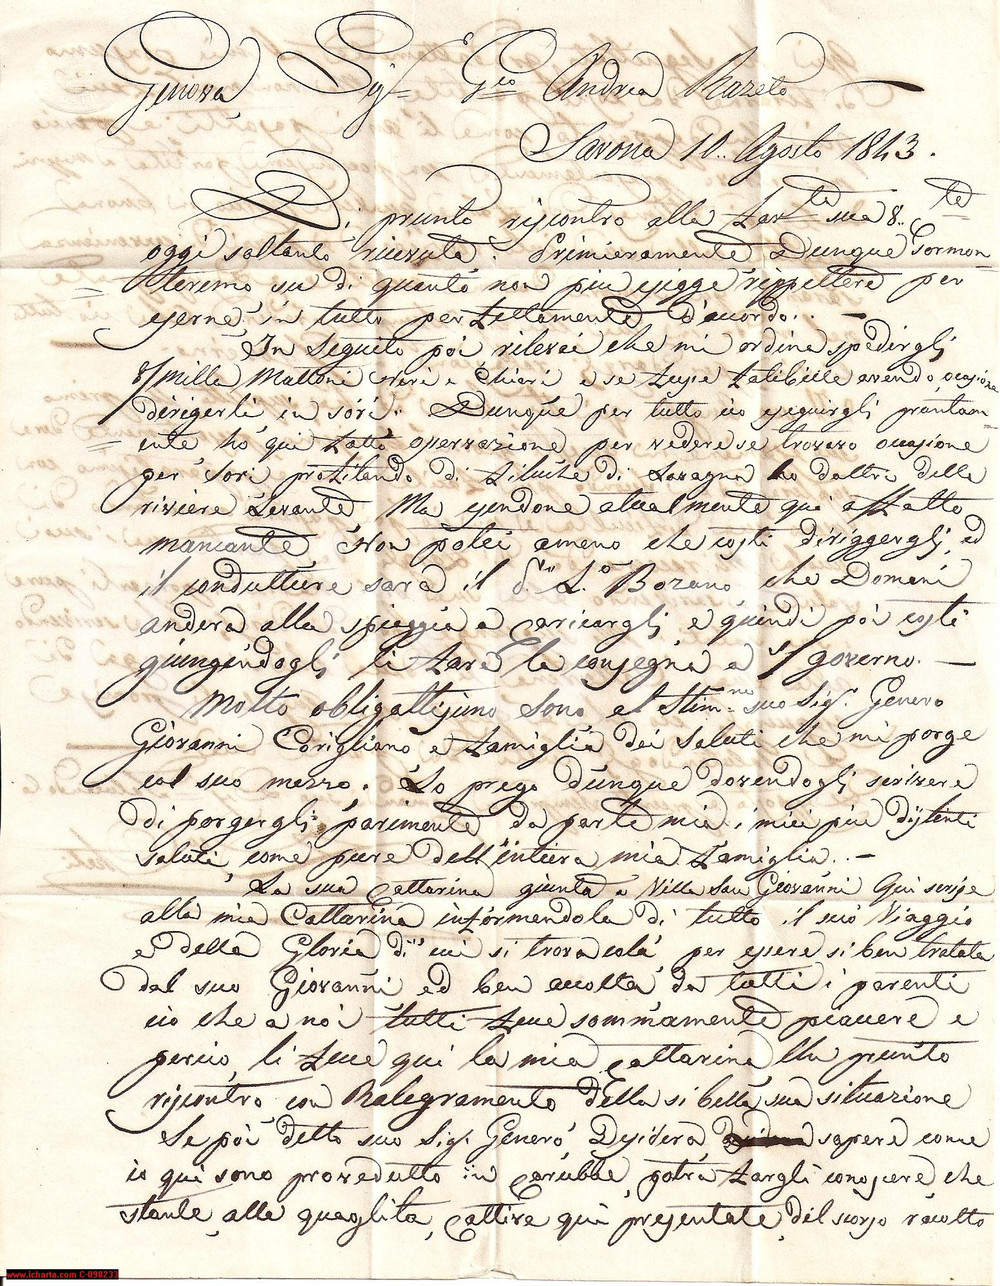 Genova Sig.r Gio Andrea Razeto
Savona 10.. Agosto 1843.
Di prunto riscontro alla sua 8..
oggi soltanto ricevuta. Primieramente Dunque Sormon
teremo su di quanto non piu esigge rippettere per
eserne in tutto perfettamente d'acordo..
In seguito poi rilevai che mi ordina spedirgli
8/mille Mattoni Neri e Chiari e se fusse fatibille avendo ocasione
dirigerli in Sori. Dunque per tutto ciò eseguirgli pruntam
ente hò qui fatto osservazione per vedere se trovavo ocasione
per Sori profitando di filuche di Lavagna o d'altri della
riviera Levante Ma esendone atualmente qui affatto
mancante Non potei ameno che costi diriggergli, ed
il conduttiere sarà il d.to L.o Bozano che Domani
anderà alla spieggia a caricargli e quindi poi costi
giungendogli li farà la consegna a 1/ governo.
Molto obligattisimo sono al Stim.mo suo Sig.r Genero
Giovanni Corigliano e famiglia dei saluti che mi porge
col suo mezzo. Lo prego dunque dovendogli scrivere
di porgergli parimente da parte mia i miei più distenti
saluti come pure dell'intiera mia famiglia..
La sua Cattarina giunta a Villa San Giovanni Qui scrisse
alla mia Cattarina informendola di tutto il suo Viaggio
e della Gloria di cui si trova colà per essere si ben tratata
dal suo Giovanni ed ben accolta da tutti i parenti
ciò che a noi tutti fece sommamente piacere e
perciò li fece qui la mia Cattarina un prunto
riscontro con Ralegramento della si bella sua situazione
Se poi detto suo Sig.r Genero Desidera sapere come
io qui sono proveduto in Carubbe, potrà fargli conoscere che
stante alla quaglità Cattive qui presentate del scorso racolto
www.icharta.com C-098233